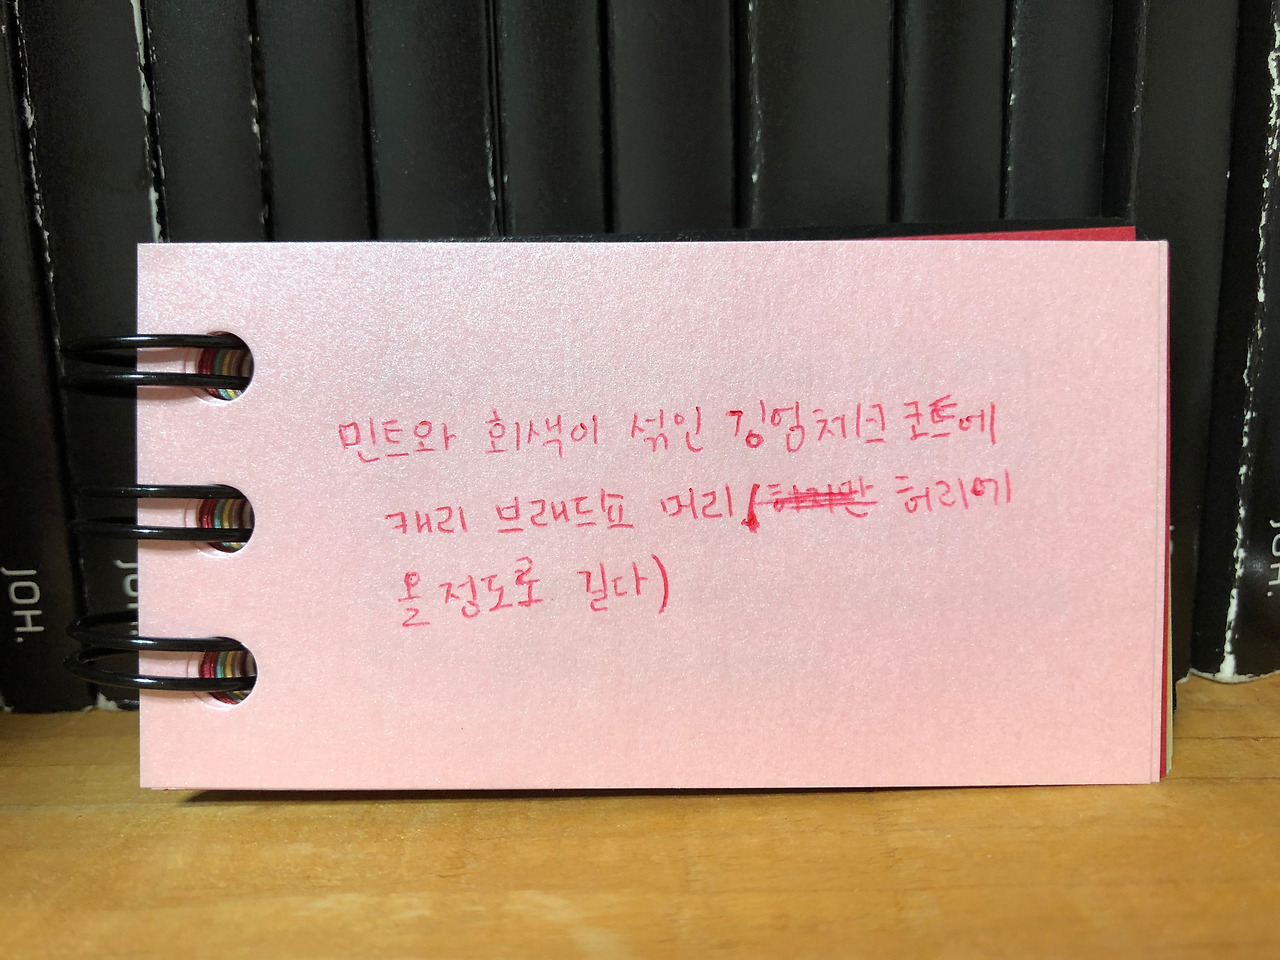 민트와 회색이 섞인 깅엄체크 코트에
캐리 브래드쇼 머리( 허리에
올 정도로 길다)
JOH.
JOH.
JOH.